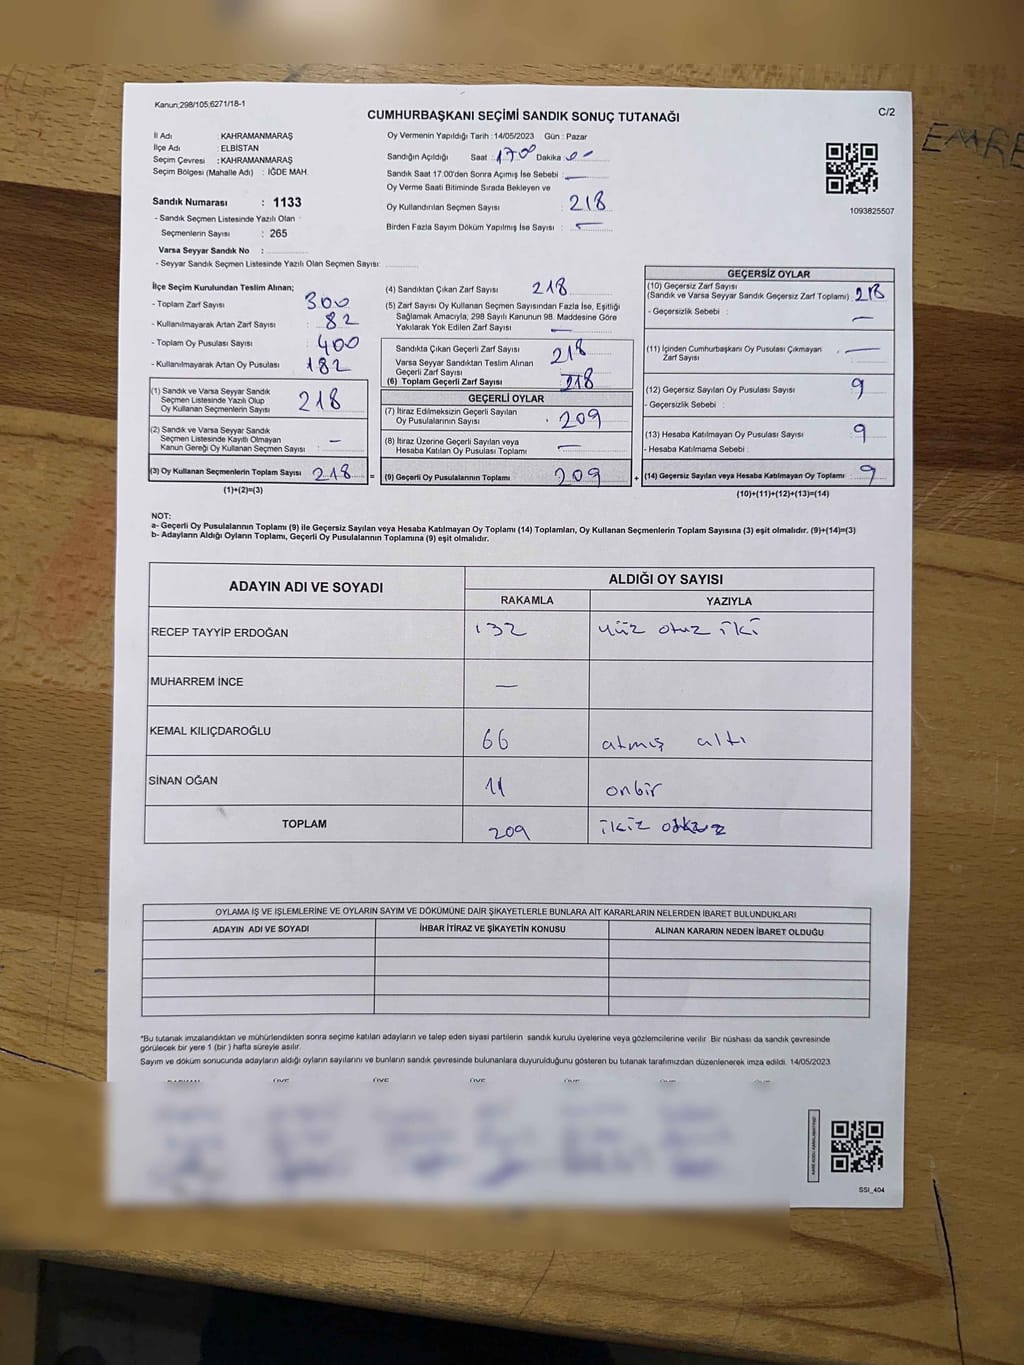 Kanun;298/105;6271/18-1
CUMHURBAŞKANI SEÇİMİ SANDIK SONUÇ TUTANAĞI
C/2
EMRE
İl Adı : KAHRAMANMARAŞ
İlçe Adı : ELBİSTAN
Seçim Çevresi : KAHRAMANMARAŞ
Seçim Bölgesi (Mahalle Adı) : İĞDE MAH.
Sandık Numarası : 1133
- Sandık Seçmen Listesinde Yazılı Olan
Seçmenlerin Sayısı : 265
Varsa Seyyar Sandık No :
- Seyyar Sandık Seçmen Listesinde Yazılı Olan Seçmen Sayısı:
Oy Vermenin Yapıldığı Tarih :14/05/2023 Gün : Pazar
Sandığın Açıldığı Saat : 1700 Dakika
Sandık Saat 17.00'den Sonra Açımış İse Sebebi : —
Oy Verme Saati Bitiminde Sırada Bekleyen ve
Oy Kullandırılan Seçmen Sayısı : 218
Birden Fazla Sayım Döküm Yapılmış İse Sayısı : —
1093825507
İlçe Seçim Kurulundan Teslim Alınan;
- Toplam Zarf Sayısı : 300
- Kullanılmayarak Artan Zarf Sayısı : 82
- Toplam Oy Pusulası Sayısı : 400
- Kullanılmayarak Artan Oy Pusulası : 182
(1) Sandık ve Varsa Seyyar Sandık
Seçmen Listesinde Yazılı Olup
Oy Kullanan Seçmenlerin Sayısı : 218
(2) Sandık ve Varsa Seyyar Sandık
Seçmen Listesinde Kayıtlı Olmayan
Kanun Gereği Oy Kullanan Seçmen Sayısı : —
(3) Oy Kullanan Seçmenlerin Toplam Sayısı : 218 =
(1)+(2)=(3)
(4) Sandıktan Çıkan Zarf Sayısı : 218
(5) Zarf Sayısı Oy Kullanan Seçmen Sayısından Fazla İse, Eşitliği
Sağlamak Amacıyla, 298 Sayılı Kanunun 98. Maddesine Göre
Yakılarak Yok Edilen Zarf Sayısı : —
Sandıkta Çıkan Geçerli Zarf Sayısı : 218
Varsa Seyyar Sandıktan Teslim Alınan
Geçerli Zarf Sayısı
(6) Toplam Geçerli Zarf Sayısı : 218
GEÇERLİ OYLAR
(7) İtiraz Edilmeksizin Geçerli Sayılan
Oy Pusulalarının Sayısı : 209
(8) İtiraz Üzerine Geçerli Sayılan veya
Hesaba Katılan Oy Pusulası Toplamı : —
(9) Geçerli Oy Pusulalarının Toplamı : 209 +
GEÇERSİZ OYLAR
(10) Geçersiz Zarf Sayısı
(Sandık ve Varsa Seyyar Sandık Geçersiz Zarf Toplamı) : 218
- Geçersizlik Sebebi : —
(11) İçinden Cumhurbaşkanı Oy Pusulası Çıkmayan
Zarf Sayısı : —
(12) Geçersiz Sayılan Oy Pusulası Sayısı : 9
- Geçersizlik Sebebi :
(13) Hesaba Katılmayan Oy Pusulası Sayısı : 9
- Hesaba Katılmama Sebebi :
(14) Geçersiz Sayılan veya Hesaba Katılmayan Oy Toplamı : 9
(10)+(11)+(12)+(13)=(14)
NOT:
a- Geçerli Oy Pusulalarının Toplamı (9) ile Geçersiz Sayılan veya Hesaba Katılmayan Oy Toplamı (14) Toplamları, Oy Kullanan Seçmenlerin Toplam Sayısına (3) eşit olmalıdır. (9)+(14)=(3)
b- Adayların Aldığı Oyların Toplamı, Geçerli Oy Pusulalarının Toplamına (9) eşit olmalıdır.
ADAYIN ADI VE SOYADI ALDIĞI OY SAYISI
RAKAMLA YAZIYLA
RECEP TAYYİP ERDOĞAN 132 yüz otuz iki
MUHARREM İNCE —
KEMAL KILIÇDAROĞLU 66 atmış altı
SİNAN OĞAN 11 onbir
TOPLAM 209
OYLAMA İŞ VE İŞLEMLERİNE VE OYLARIN SAYIM VE DÖKÜMÜNE DAİR ŞİKAYETLERLE BUNLARA AİT KARARLARIN NELERDEN İBARET BULUNDUKLARI
ADAYIN ADI VE SOYADI İHBAR İTİRAZ VE ŞİKAYETİN KONUSU ALINAN KARARIN NEDEN İBARET OLDUĞU
*Bu tutanak imzalandıktan ve mühürlendikten sonra seçime katılan adayların ve talep eden siyasi partilerin sandık kurulu üyelerine veya gözlemcilerine verilir. Bir nüshası da sandık çevresinde
görülecek bir yere 1 (bir ) hafta süreyle asılır.
Sayım ve döküm sonucunda adayların aldığı oyların sayılarını ve bunların sandık çevresinde bulunanlara duyurulduğunu gösteren bu tutanak tarafımızdan düzenlenerek imza edildi. 14/05/2023
SSI_404